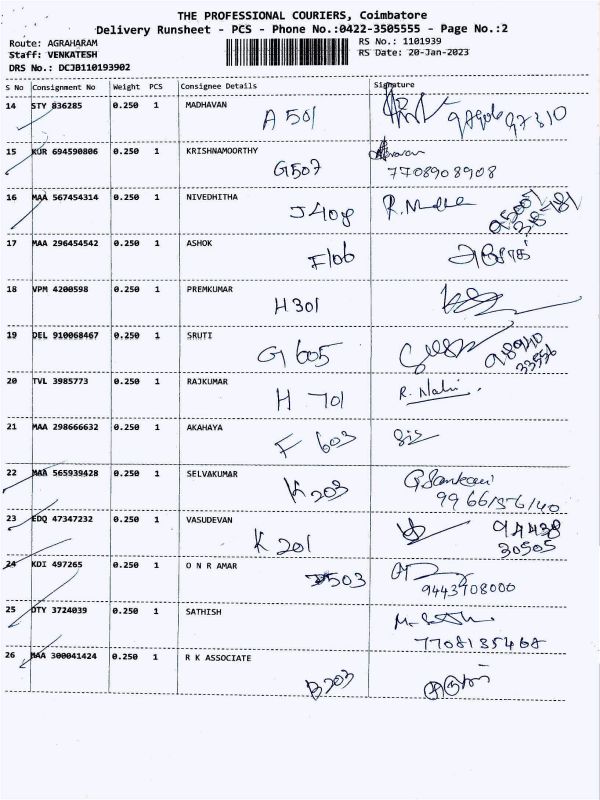 THE PROFESSIONAL COURIERS, Coimbatore
Delivery Runsheet - PCS - Phone No.:0422-3505555 - Page No.:2
Route: AGRAHARAM RS No.: 1101939
Staff: VENKATESH RS Date: 20-Jan-2023
DRS No.: DCJB110193902
S No Consignment No Weight PCS Consignee Details Signature
14 STY 836285 0.250 1 MADHAVAN
A 501
15 KUR 694590806 0.250 1 KRISHNAMOORTHY
G507 7708908908
16 MAA 567454314 0.250 1 NIVEDHITHA
J408
17 MAA 296454542 0.250 1 ASHOK
F106
18 VPM 4200598 0.250 1 PREMKUMAR
H301
19 DEL 910068467 0.250 1 SRUTI
G605 98940
33556
20 TVL 3985773 0.250 1 RAJKUMAR
H 701 R.
21 MAA 298666632 0.250 1 AKAHAYA
F 603
22 MAA 565939428 0.250 1 SELVAKUMAR
K203
23 EDQ 47347232 0.250 1 VASUDEVAN
K 201 94438
30505
24 KDI 497265 0.250 1 O N R AMAR
503
9443708000
25 DTY 3724039 0.250 1 SATHISH
7708135468
26 MAA 300041424 0.250 1 R K ASSOCIATE
B203